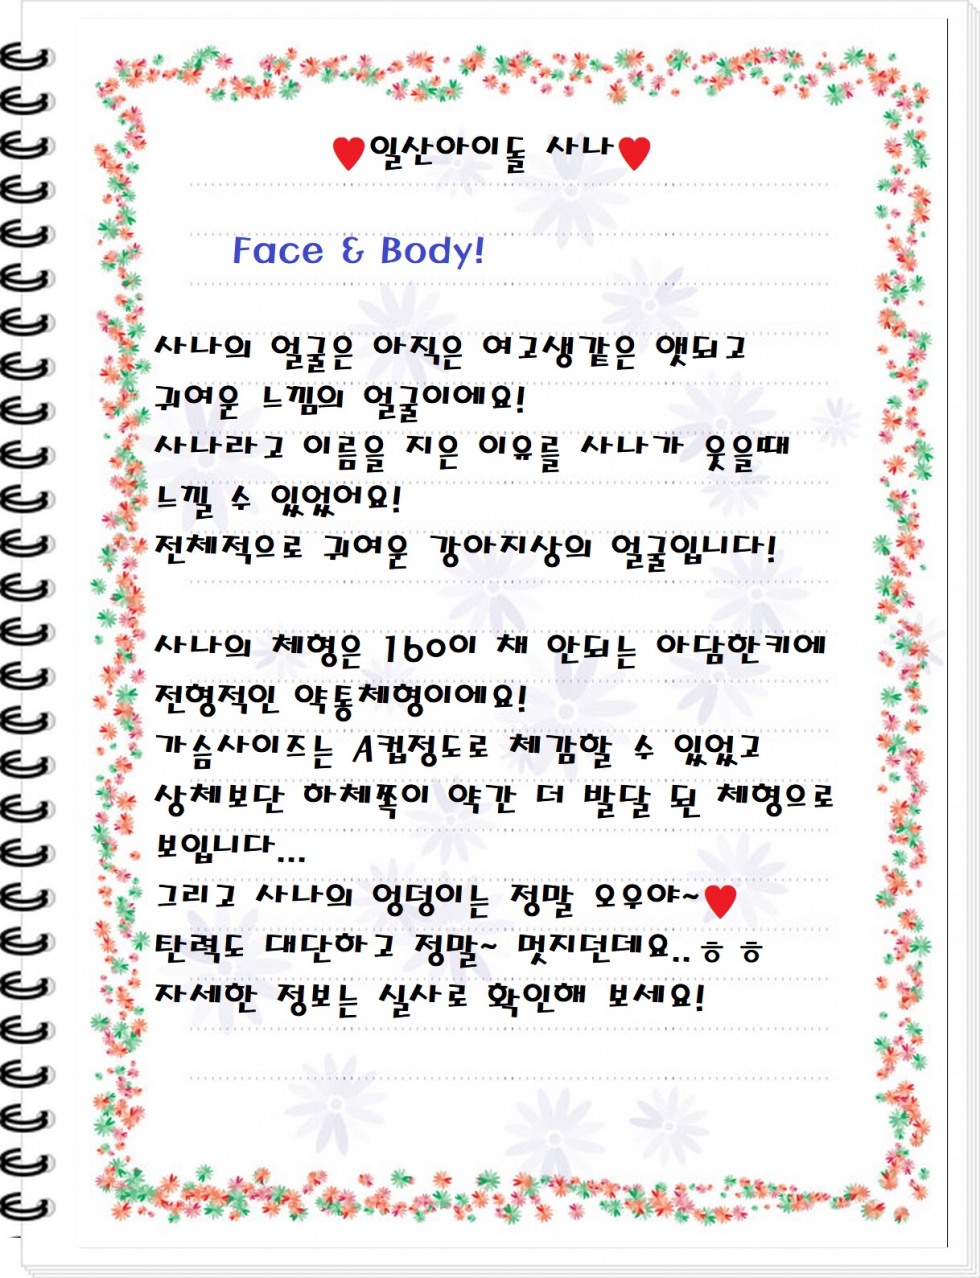 ♥일산아이돌 사나♥
Face & Body!
사나의 얼굴은 아직은 여고생같은 앳되고
귀여운 느낌의 얼굴이에요!
사나라고 이름을 지은 이유를 사나가 웃을때
느낄 수 있었어요!
전체적으로 귀여운 강아지상의 얼굴입니다!
사나의 체형은 160이 채 안되는 아담한키에
전형적인 약통체형이에요!
가슴사이즈는 A컵정도로 체감할 수 있었고
상체보단 하체쪽이 약간 더 발달 된 체형으로
보입니다...
그리고 사나의 엉덩이는 정말 오우야~♥
탄력도 대단하고 정말~ 멋지던데요..ㅎㅎ
자세한 정보는 실사로 확인해 보세요!